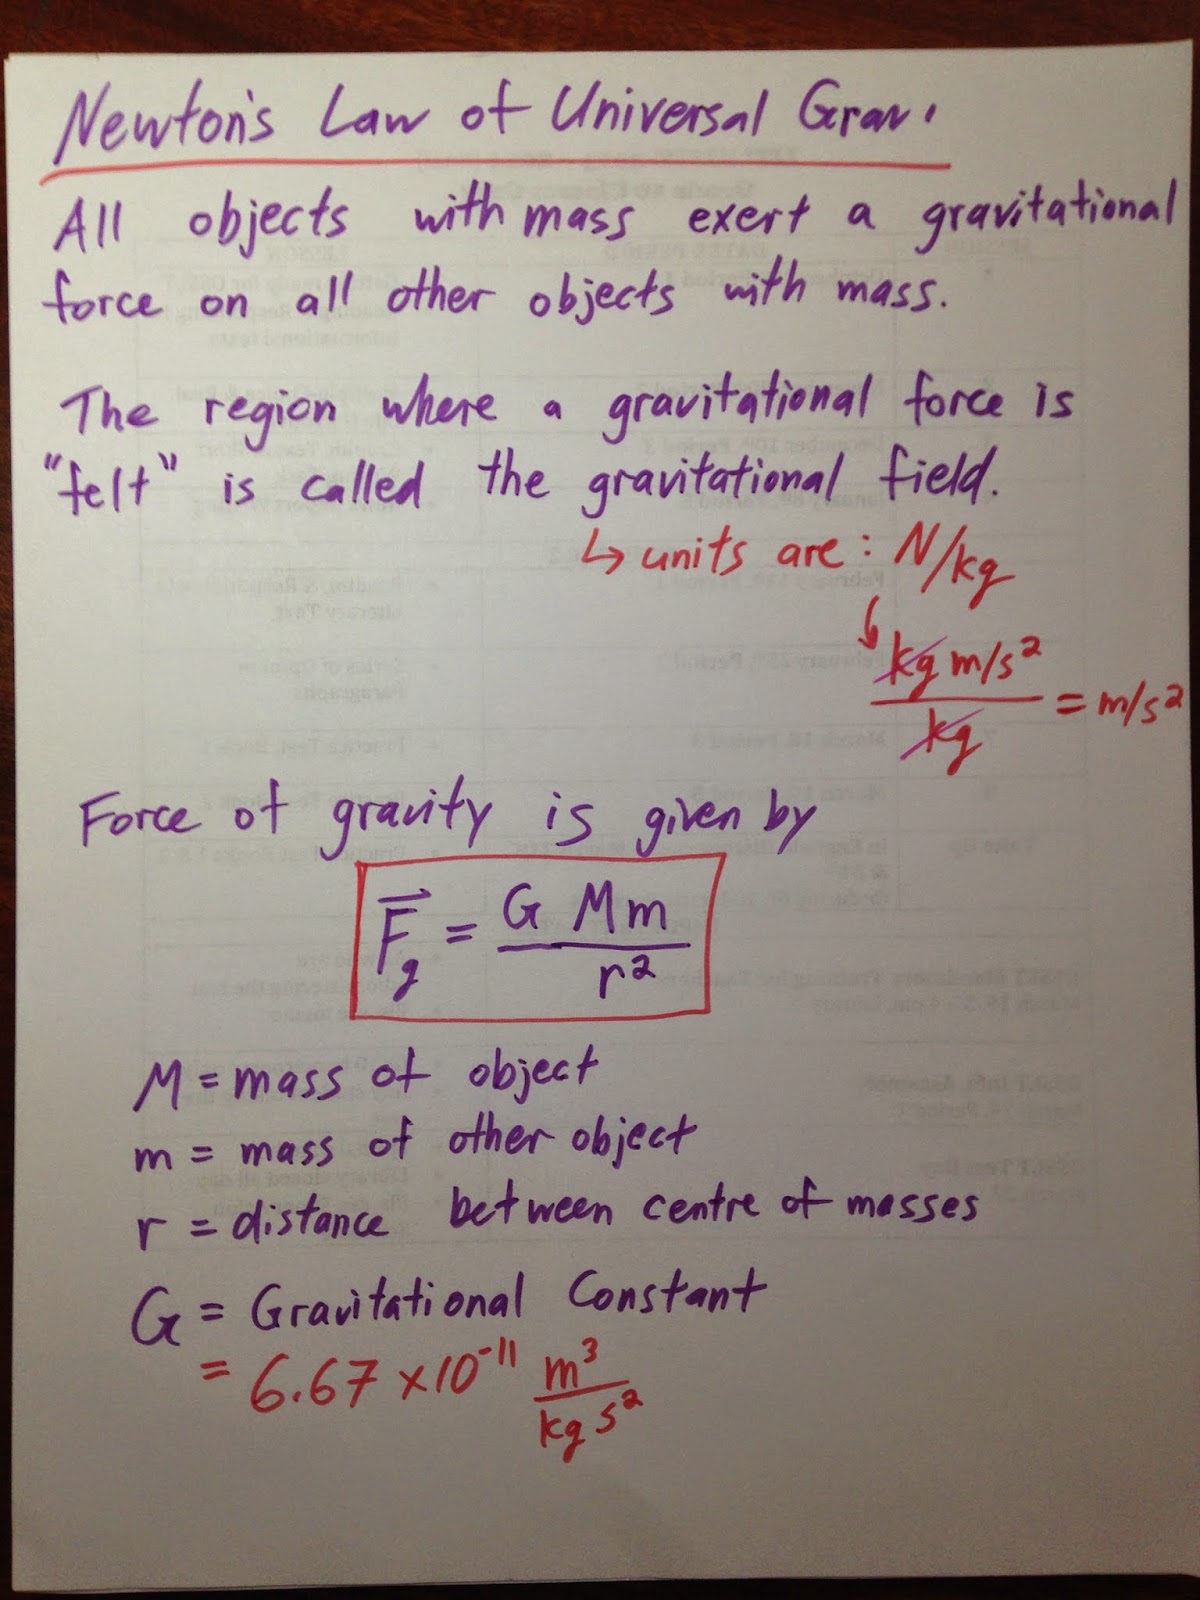 Newton's Law of Universal Grav.
All objects with mass exert a gravitational
force on all other objects with mass.
The region where a gravitational force is
"felt" is called the gravitational field.
↳ units are : N/kg
kg m/s²
kg
= m/s²
Force of gravity is given by
F⃗g = G Mm
r²
M = mass of object
m = mass of other object
r = distance between centre of masses
G = Gravitational Constant
= 6.67 × 10⁻¹¹ m³
kg s²